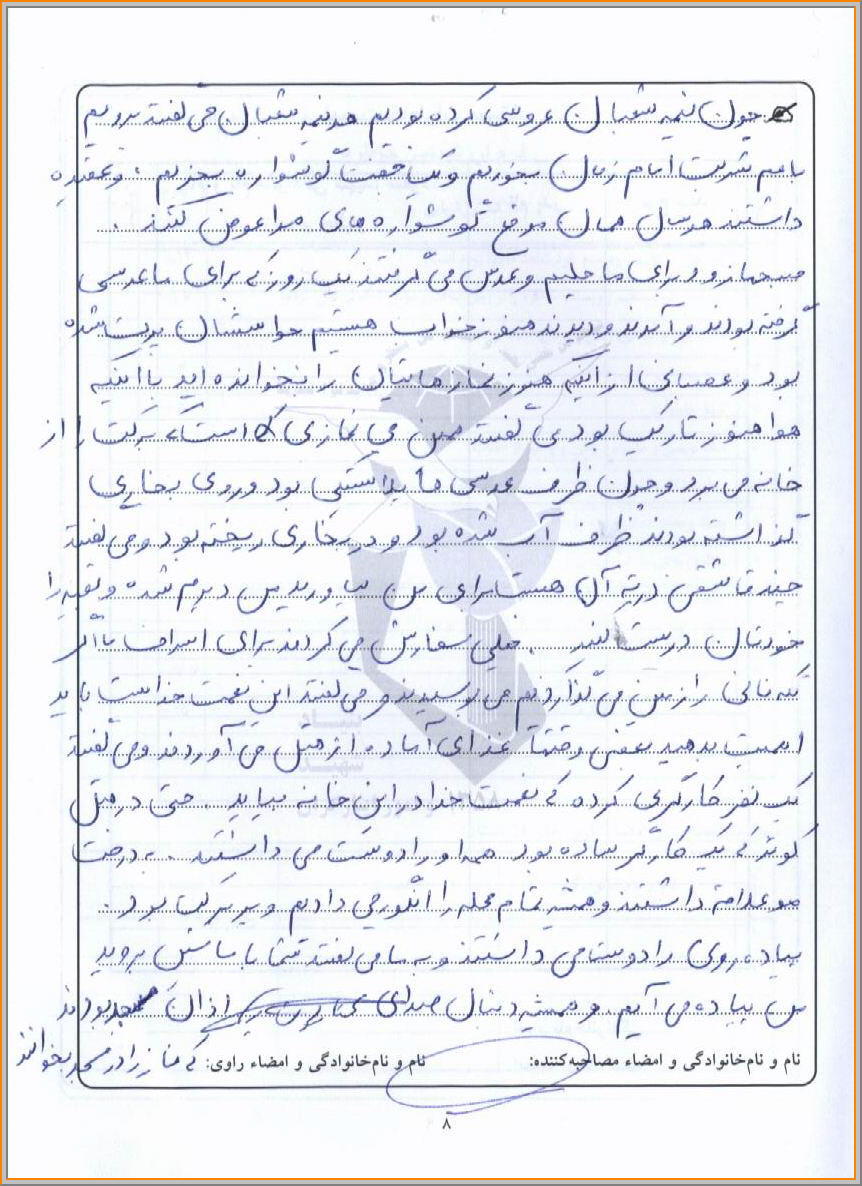 چون نیمه شعبان عروسی کرده بودیم هر نیمه شعبان می گفتند برویم
با هم شربت امام زمان بخوریم و یک جفت گوشواره بخریم، و عقیده
داشتند هر سال همان موقع گوشواره های مرا عوض کنند.
برای ما حلیم و عدس می گرفتند یک روز که برای ما عدسی
گرفته بودند و آمدند و دیدند هنوز خواب هستیم حواسشان پرت شده
بود و عصبانی از اینکه هنوز نمازهایتان را نخوانده اید با اینکه
هوا هنوز تاریک بود می گفتند بی نمازی است که برکت را از
خانه می برد و چون ظرف عدسی ها پلاستیکی بود و روی بخاری
گذاشته بودند ظرف آب شده بود و در بخاری ریخته بود و می گفتند
چند قاشقی در ته آن هست برای من بیاورید من دیرم شده و بقیه را
خودتان درست کنید. خیلی سفارش می کردند برای اسراف تا اگر
تکه نانی را زمین می گذاردیم می بوسیدند و می گفتند این نعمت خداست باید
اهمیت بدهید بعضی وقتها غذای آماده از هتل می آوردند و می گفتند
یک نفر کارگری کرده که نعمت خدا در این خانه بیاید. حتی در هتل
کوثر که یک کارگر ساده بود همه او را دوست می داشتند. به درخت
مو علاقه داشتند و همیشه تمام محله را انگور می دادیم و پر برکت بود.
پیاده روی را دوست می داشتند و به ما می گفتند شما با ماشین بروید
من پیاده می آیم. و همیشه دنبال صدای اذان مسجد بودند
که نماز را در مسجد بخوانند
نام و نام‌خانوادگی و امضاء مصاحبه‌کننده: نام و نام‌خانوادگی و امضاء راوی:
۸